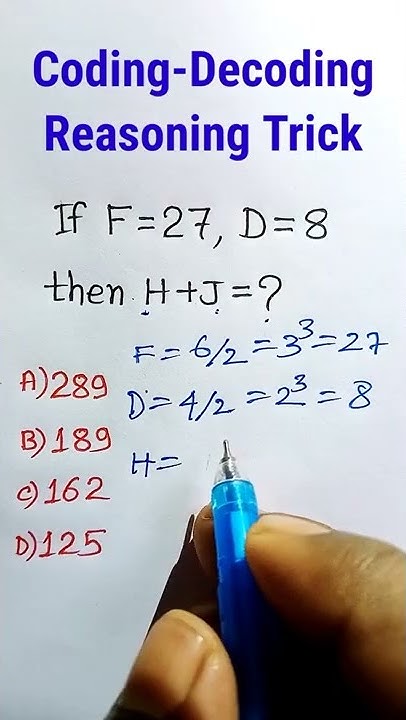 Coding-Decoding
Reasoning Trick
If F=27, D=8
then H+J=?
F=6/2=3³=27
A)289
D=4/2=2³=8
B)189
H=
C)162
D)125